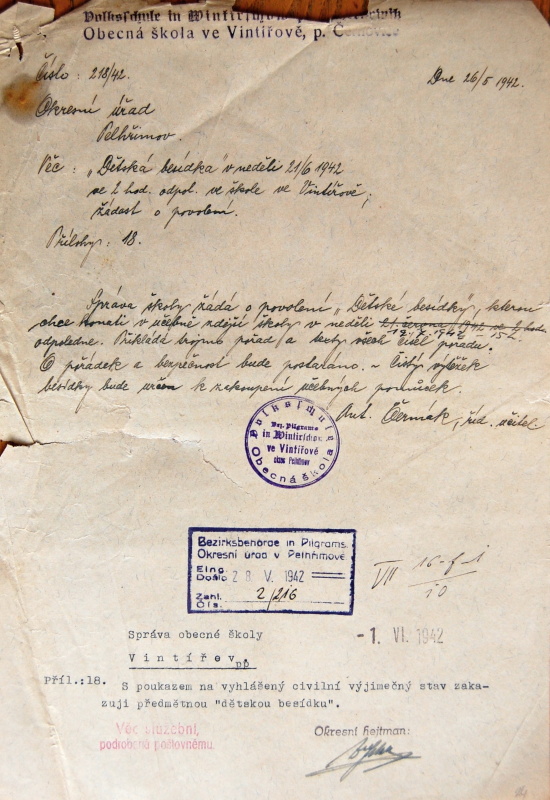 Volksschule in Wintirschov
Obecná škola ve Vintířově, p. Černovice
Číslo: 218/42.
Dne 26/5 1942.
Okresní úřad
Pelhřimov.
Věc: „Dětská besídka“ v neděli 21/6 1942
ve 2 hod. odpol. ve škole ve Vintířově,
žádost o povolení.
Přílohy: 18.
Správa školy žádá o povolení „Dětské besídky“, kterou
chce konati v učebně zdejší školy v neděli 21. června 1942 ve 2 hod.
odpoledne. Přikládá trojmo pořad a texty všech čísel pořadu.
O pořádek a bezpečnost bude postaráno. – Čistý výtěžek
besídky bude určen k zakoupení učebných pomůcek.
Ant. Čermák, říd. učitel.
Volksschule
Bez. Pilgrams
in Wintirschov
ve Vintířově
okres Pelhřimov
Obecná škola
Bezirksbehörde in Pilgrams.
Okresní úřad v Pelhřimově.
Eing.
Došlo 28. V. 1942
Zahl.
Čís. 2/216
VII 10
Správa obecné školy
-1. VI. 1942
Vintířov
pp
Příl.:18.
S poukazem na vyhlášený civilní výjimečný stav zaka-
zuji předmětnou "dětskou besídku".
Věc úřední,
podrobena poštovnému.
Okresní hejtman: